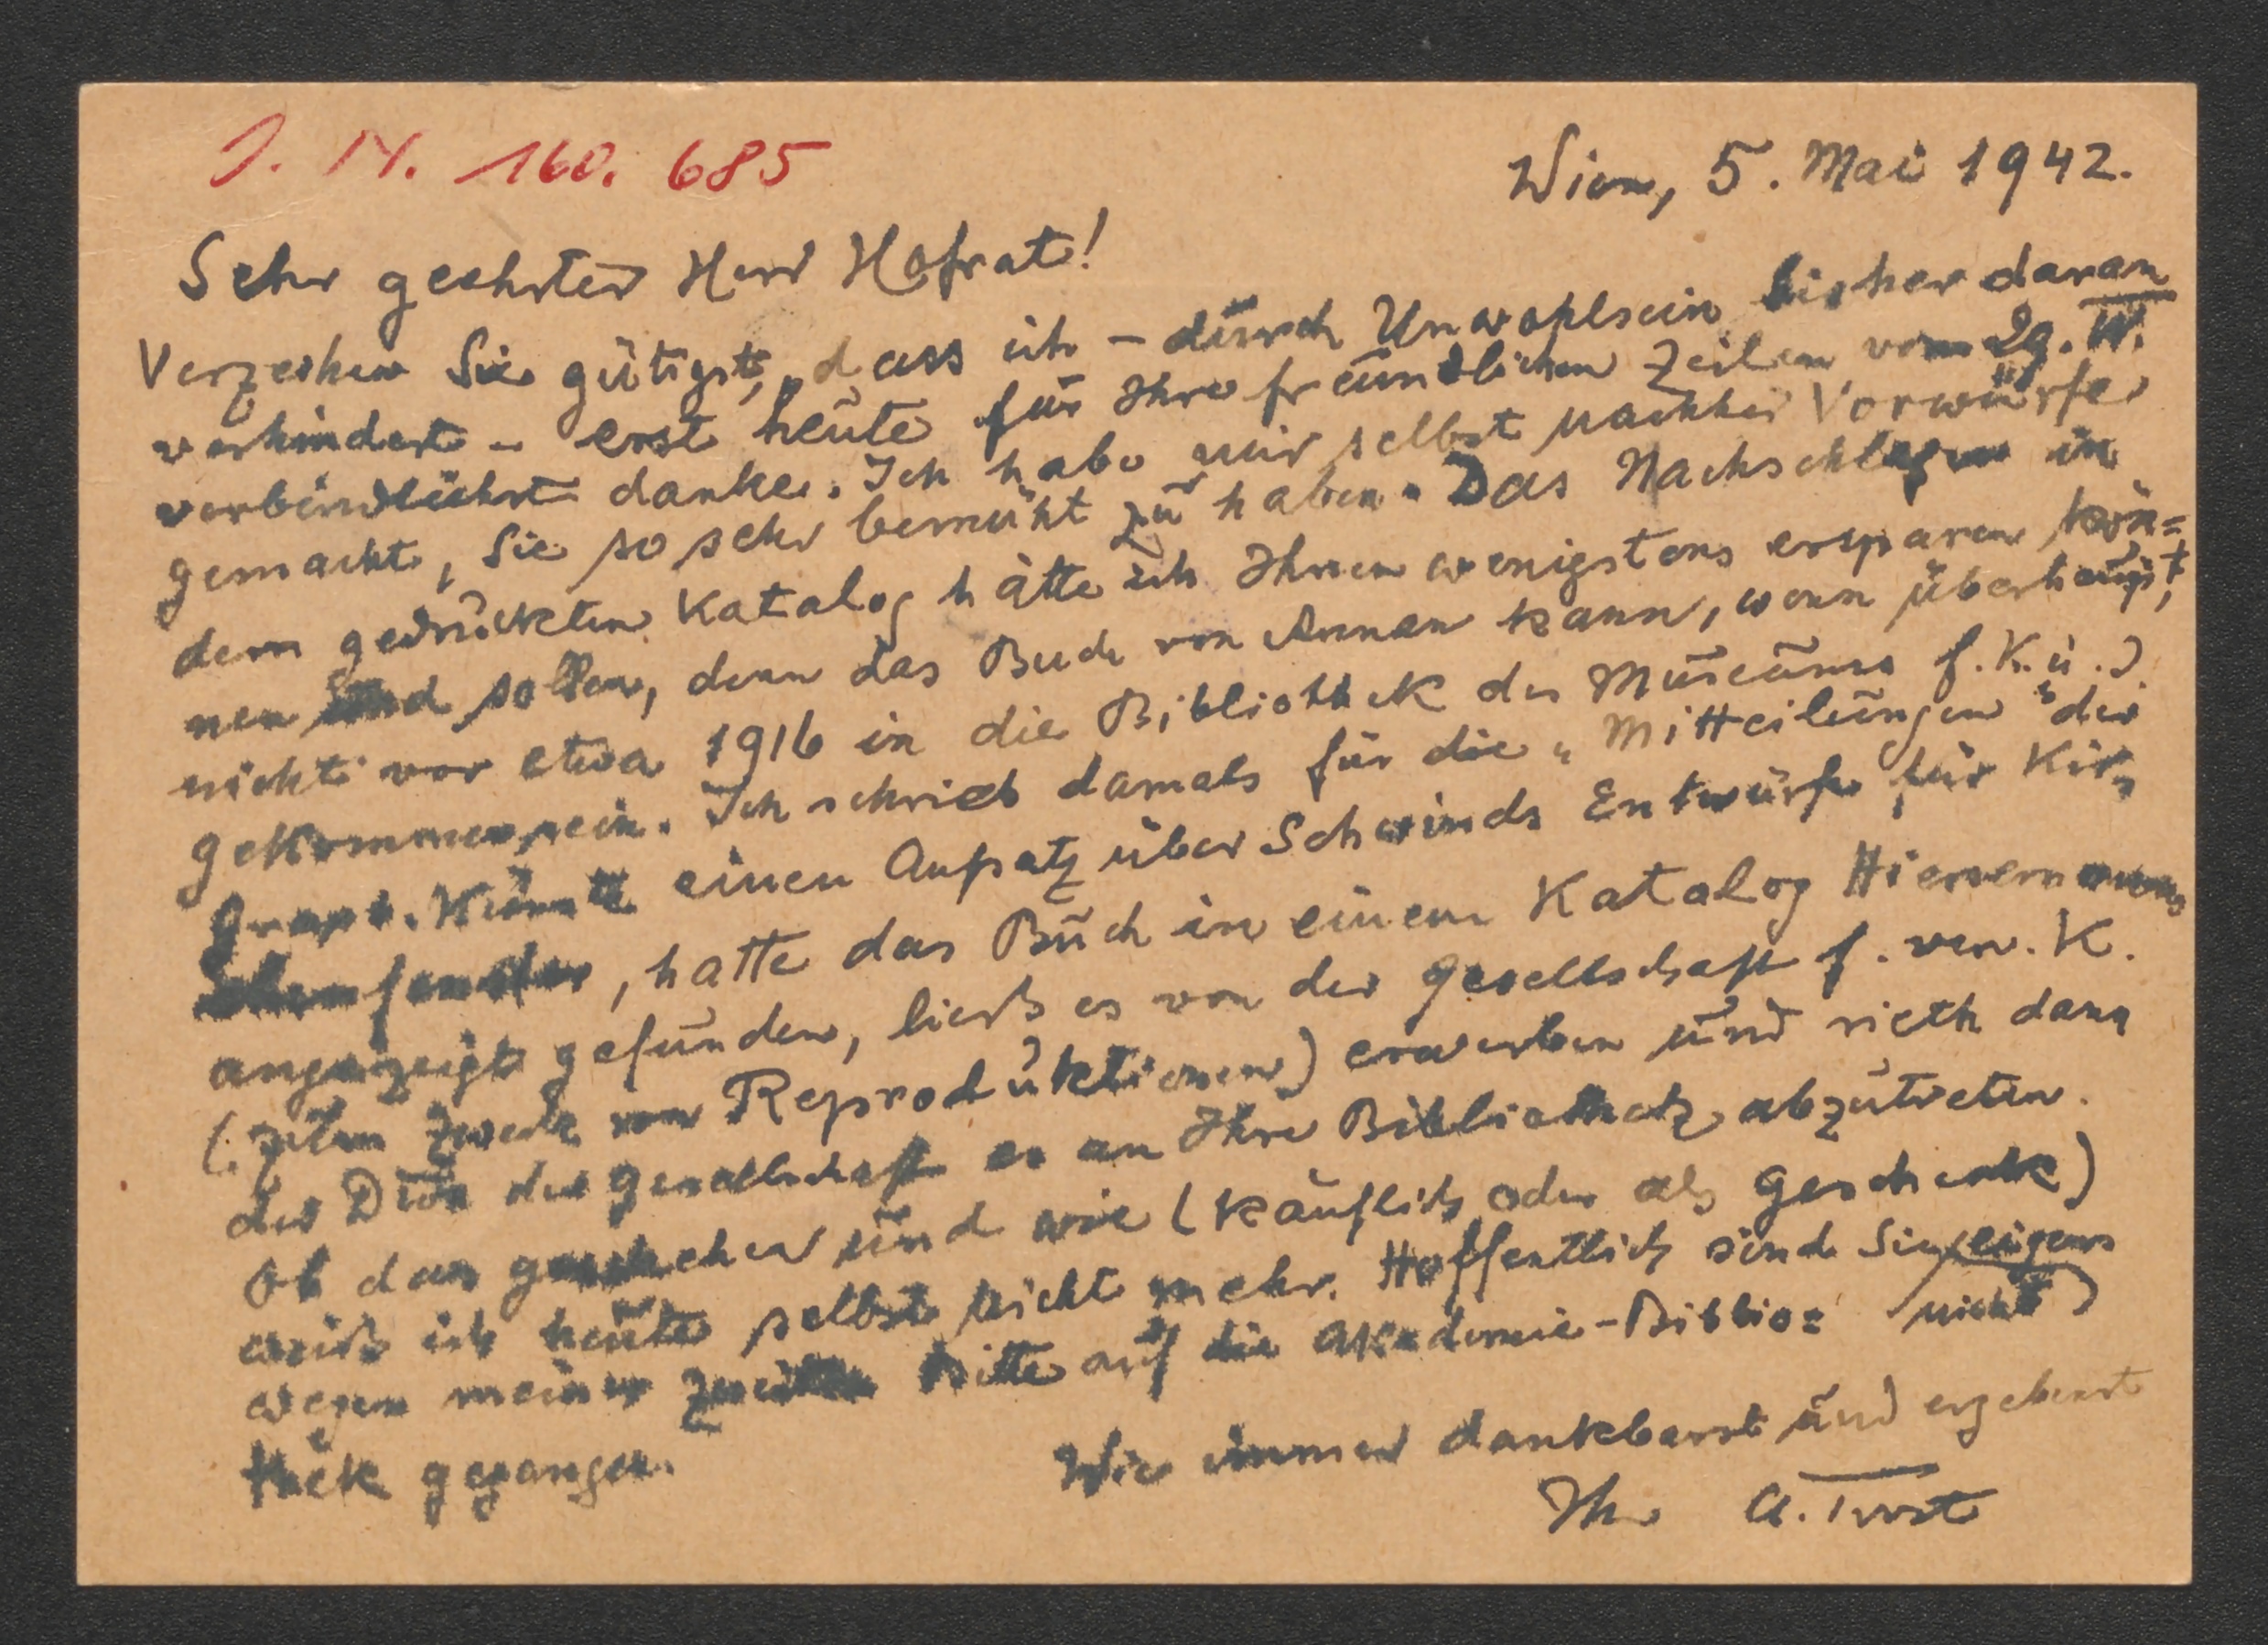 J. N. 160. 685
Wien, 5. Mai 1942.
Sehr geehrter Herr Hofrat!
Verzeihen Sie gütigst, dass ich – durch Unwohlsein bisher daran
verhindert – erst heute für Ihre freundlichen Zeilen vom 29. IV.
verbindlichst danke. Ich habe mir selbst nachher Vorwürfe
gemacht, Sie so sehr bemüht zu haben. Das Nachschlagen in
dem gedruckten Katalog hätte ich Ihnen wenigstens ersparen kön=
nen und sollen, denn das Buch von Annan kann, wenn überhaupt,
nicht vor etwa 1916 in die Bibliothek des Museums f. K. u. J.
gekommen sein. Ich schrieb damals für die „Mitteilungen" der
Graph. Künste einen Aufsatz über Schwinds Entwürfe für Kir=
chenfenster, hatte das Buch in einem Katalog Hiersemanns
angezeigt gefunden, ließ es von der Gesellschaft f. verv. K.
(zum Zweck von Reproduktionen) erwerben und rieth dann
der Dion der Gesellschaft es an Ihre Bibliothek abzutreten.
Ob das geschehen und wie (käuflich oder als Geschenk)
weiß ich heute selbst nicht mehr. Hoffentlich sind Sie eigens
wegen meiner zweiten Bitte auf die Akademie-Biblio= nicht
thek gegangen.
Wie immer dankbarst und ergebenst
Ihr A. Trost